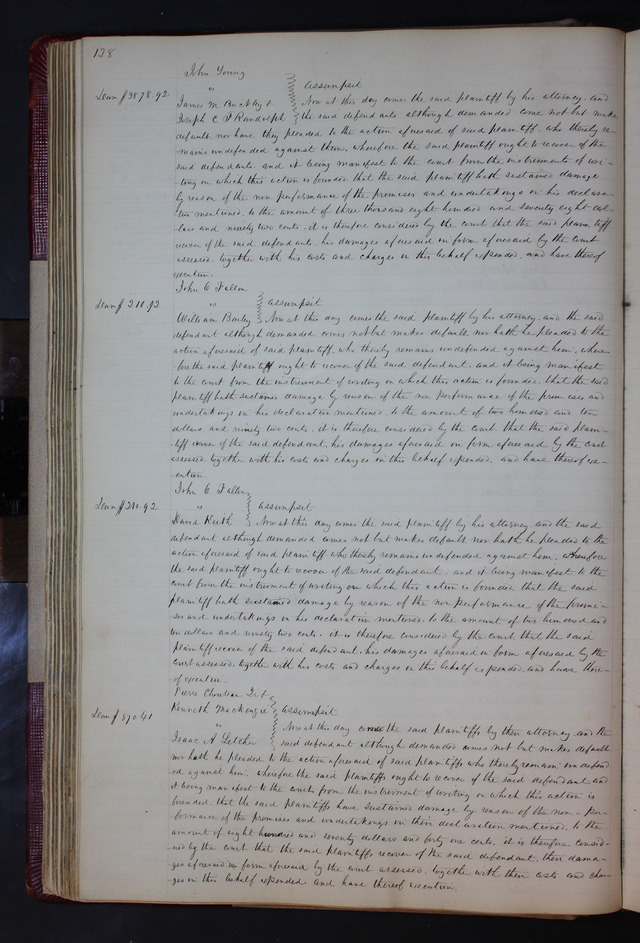 128
John Young
vs assumpsit
Dam $3878.92 James M Buckley & Now at this day comes the said plaintiff by his attorney, and
Joseph C F Randolph the said defendants although demanded come not but make
default, nor have they pleaded to the action aforesaid of said plaintiff, who thereby re-
mains undefended against them, wherefore the said plaintiff ought to recover of the
said defendants, and it being manifest to the court from the instruments of wri-
ting on which this action is founded that the said plaintiff hath sustained damage
by reason of the non performance of the promises and undertakings in his declara-
tion mentioned, to the amount of three thousand eight hundred and seventy eight dol-
lars and ninety two cents, it is therefore considered by the court that the said plaintiff
recover of the said defendants, his damages aforesaid in form aforesaid by the court
assessed, together with his costs and charges in this behalf expended, and have thereof
execution.
John C Fallon
vs assumpsit
Dam $210.92 William Now at this day comes the said plaintiff by his attorney, and the said
defendant although demanded comes not but makes default, nor hath he pleaded to the
action aforesaid of said plaintiff, who thereby remains undefended against him, where-
fore the said plaintiff ought to recover of the said defendant, and it being manifest
to the court from the instrument of writing on which this action is founded, that the said
plaintiff hath sustained damage by reason of the non performance of the promises and
undertakings in his declaration mentioned to the amount of two hundred and ten
dollars and ninety two cents, it is therefore considered by the court that the said plain-
tiff recover of the said defendant, his damages aforesaid in form aforesaid by the court
assessed together with his costs and charges in this behalf expended, and have thereof ex-
ecution.
John C Fallon
vs assumpsit
Dam $210.92 David Keith Now at this day comes the said plaintiff by his attorney and the said
defendant although demanded comes not but makes default, nor hath he pleaded to the
action aforesaid of said plaintiff who thereby remains undefended against him, wherefore
the said plaintiff ought to recover of the said defendant, and it being manifest to the
court from the instrument of writing on which this action is founded that the said
plaintiff hath sustained damage by reason of the non performance of the promi-
ses and undertakings in his declaration mentioned, to the amount of two hundred and
ten dollars and ninety two cents, it is therefore considered by the court that the said
plaintiff recover of the said defendant, his damages aforesaid in form aforesaid by the
court assessed, together with his costs and charges in this behalf expended, and have there-
of execution.
Pierre Chouteau Jr &
Kenneth Mackenzie assumpsit
Dam $870.41 vs Now at this day come the said plaintiffs by their attorney, and the
Isaac A Letcher said defendant although demanded comes not but makes default
nor hath he pleaded to the action aforesaid of said plaintiffs who thereby remain undefend-
ed against him, wherefore the said plaintiffs ought to recover of the said defendant and
it being manifest to the court from the instrument of writing on which this action is
founded, that the said plaintiffs have sustained damage by reason of the non-per-
formance of the promises and undertakings in their declaration mentioned, to the
amount of eight hundred and seventy dollars and forty one cents, it is therefore consid-
ered by the court that the said plaintiffs recover of the said defendant, their dama-
ges aforesaid in form aforesaid by the court assessed, together with their costs and char-
ges in this behalf expended and have thereof execution.